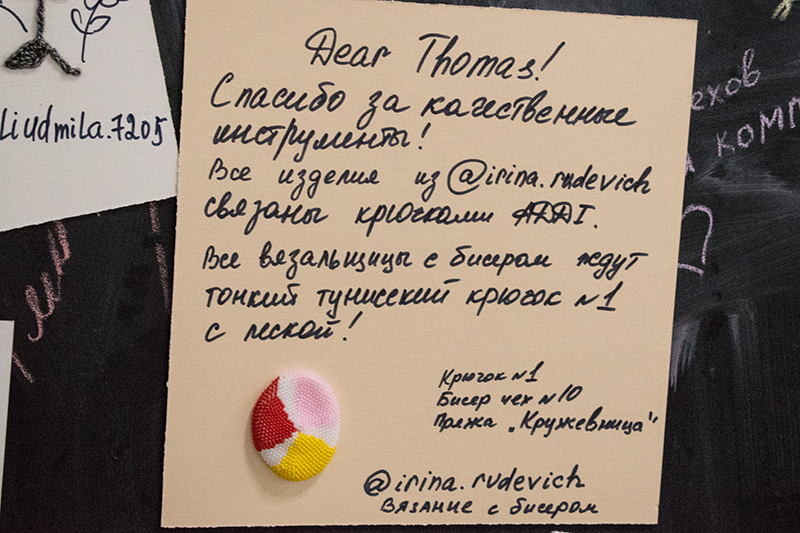 Liudmila.7205
Dear Thomas!
Спасибо за качественные
инструменты!
Все изделия из @irina.rudevich
связаны крючками ADDI.
Все вязальщицы с бисером ждут
тонкий тунисский крючок №1
с леской!
Крючок №1
Бисер чех №10
Пряжа „Кружевница"
@irina.rudevich
Вязание с бисером